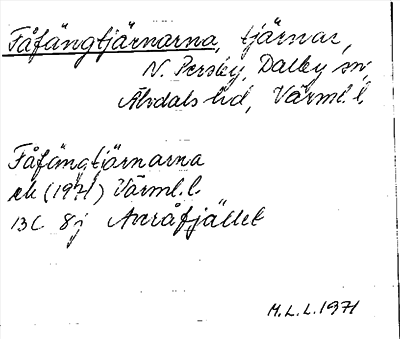 Fåfängtjärnarna, tjärnar,
N. Persby, Dalby sn,
Älvdals hd, Värml. l.
Fåfängtjärnarna
ek (1971) Värml. l.
13C 8j Avråfjället
M.L.L. 1971